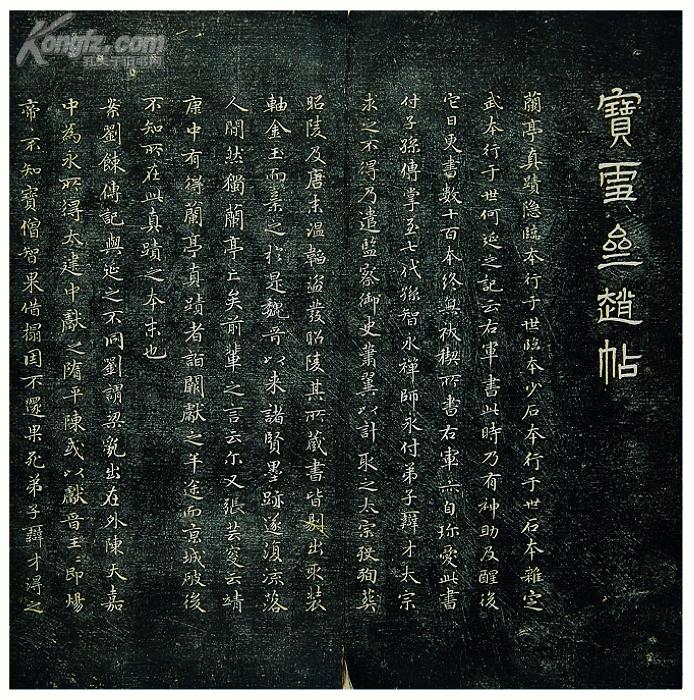 寶趙帖
蘭亭真蹟隱臨本行于世臨本少石本行于世石本雜定
武本行于世何延之記云右軍書此時乃有神助及醒後
它日更書數十百本終無祓禊所書右軍亦自珍愛此書
付子孫傳掌至七代孫智永禪師永付弟子辯才太宗
求之不得乃遣監察御史蕭翼以計取之太宗歿殉葬
昭陵及唐末溫韜盜發昭陵其所藏書皆剔出取裝
軸金玉而棄之於是魏晉以來諸賢墨跡遂復流落
人間然獨蘭亭亡矣前輩之言云尔又張芸叟云靖
康中有得蘭亭真蹟者詣闕獻之半途而京城破後
不知所在此真蹟之本末也
案劉餗傳記與延之不同劉謂梁亂出在外陳天嘉
中為永所得太建中獻之隋平陳或以獻晉王即煬
帝不知寶僧智果借搨因不還果死弟子辯才得之
Kongfz.com
孔夫子旧书网